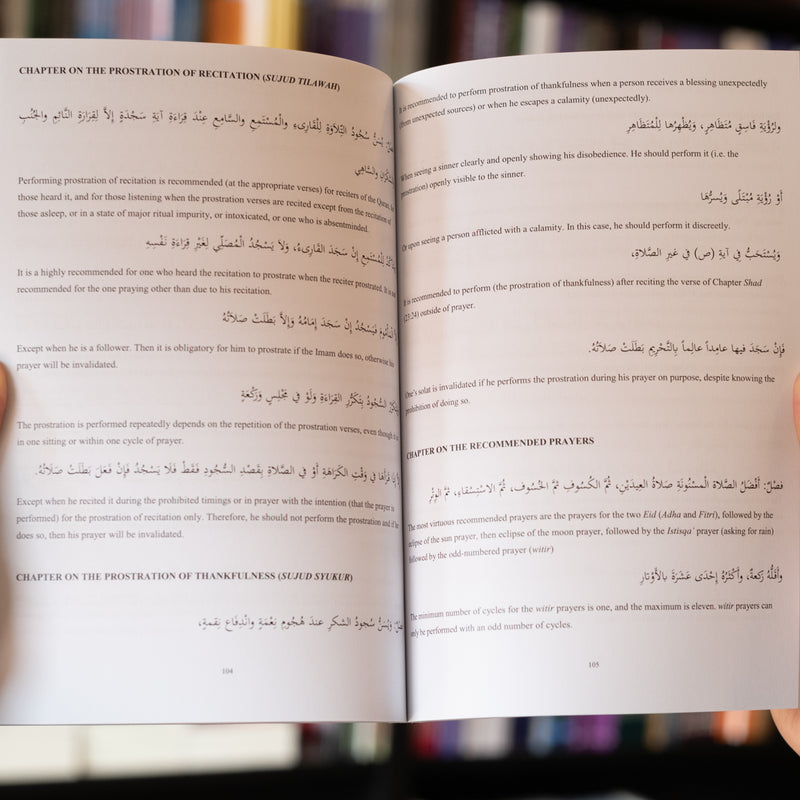 CHAPTER ON THE PROSTRATION OF RECITATION (SUJUD TILAWAH)
يُسَنُّ سُجُودُ التِّلاَوَةِ لِلْقَارِىءِ والْمُسْتَمِعِ والسَّامِعِ عِنْدَ قِرَاءَةِ آيَةِ سَجْدَةٍ إِلاَّ لِقِرَاءَةِ النَّائِمِ والجُنُبِ
والسَّاهِي
Performing prostration of recitation is recommended (at the appropriate verses) for reciters of the Quran, for
those heard it, and for those listening when the prostration verses are recited except from the recitation of
those asleep, or in a state of major ritual impurity, or intoxicated, or one who is absentminded.
لِلْمُسْتَمِعِ إِنْ سَجَدَ القَارِىءُ، وَلاَ يَسْجُدُ الْمُصَلِّي لِغَيْرِ قِرَاءَةِ نَفْسِهِ
It is a highly recommended for one who heard the recitation to prostrate when the reciter prostrated. It is not
recommended for the one praying other than due to his recitation.
فَيَسْجُدُ إِنْ سَجَدَ إِمَامُهُ وَإِلاَّ بَطَلَتْ صَلاَتُهُ
Except when he is a follower. Then it is obligatory for him to prostrate if the Imam does so, otherwise his
prayer will be invalidated.
السُّجُودُ بِتَكَرُّرِ القِرَاءَةِ وَلَوْ فِي مَجْلِسٍ وَرَكْعَةٍ
The prostration is performed repeatedly depends on the repetition of the prostration verses, even though it is
in one sitting or within one cycle of prayer.
قَرَأَهَا فِي وَقْتِ الكَرَاهَةِ أَوْ فِي الصَّلاَةِ بِقَصْدِ السُّجُودِ فَقَطْ فَلَا يَسْجُدُ فَإِنْ فَعَلَ بَطَلَتْ صَلَاتُهُ.
Except when he recited it during the prohibited timings or in prayer with the intention (that the prayer is
performed) for the prostration of recitation only. Therefore, he should not perform the prostration and if he
does so, then his prayer will be invalidated.
CHAPTER ON THE PROSTRATION OF THANKFULNESS (SUJUD SYUKUR)
وَيُسَنُّ سُجودُ الشكرِ عندَ هُجُومِ نِعْمَةٍ وانْدِفَاعِ نِقمةٍ،
104
It is recommended to perform prostration of thankfulness when a person receives a blessing unexpectedly
(from unexpected sources) or when he escapes a calamity (unexpectedly).
ولرُؤْيَةِ فَاسِقٍ مُتَظَاهِرٍ، وَيُظْهِرُها لِلْمُتَظَاهِرِ
When seeing a sinner clearly and openly showing his disobedience. He should perform it (i.e. the
prostration) openly visible to the sinner.
أَوْ رُؤْيَةِ مُبْتَلًى وَيُسِرُّهَا
Or upon seeing a person afflicted with a calamity. In this case, he should perform it discreetly.
وَيُسْتَحَبُّ فِي آيَةِ (ص) فِي غيرِ الصَّلاةِ،
It is recommended to perform (the prostration of thankfulness) after reciting the verse of Chapter Shad
(23:24) outside of prayer.
فَإِنْ سَجَدَ فيها عامِداً عالِماً بِالتَّحْرِيمِ بَطَلَتْ صَلاَتُهُ.
One's solat is invalidated if he performs the prostration during his prayer on purpose, despite knowing the
prohibition of doing so.
CHAPTER ON THE RECOMMENDED PRAYERS
فصْلٌ: أَفْضَلُ الصَّلاة الْمَسْنُونَةِ صَلاةُ العِيدَيْنِ، ثُمَّ الكُسُوفِ ثمَّ الخُسُوف، ثُمَّ الاسْتِسْقاءِ، ثمَّ الوِتْرِ
The most virtuous recommended prayers are the prayers for the two Eid (Adha and Fitri), followed by the
eclipse of the sun prayer, then eclipse of the moon prayer, followed by the Istisqa' prayer (asking for rain)
followed by the odd-numbered prayer (witir)
وأَقَلُّهُ رَكْعَةٌ، وأَكْثَرُهُ إِحْدَى عَشَرَةَ بالأَوْتارِ
The minimum number of cycles for the witir prayers is one, and the maximum is eleven. witir prayers can
only be performed with an odd number of cycles.
105